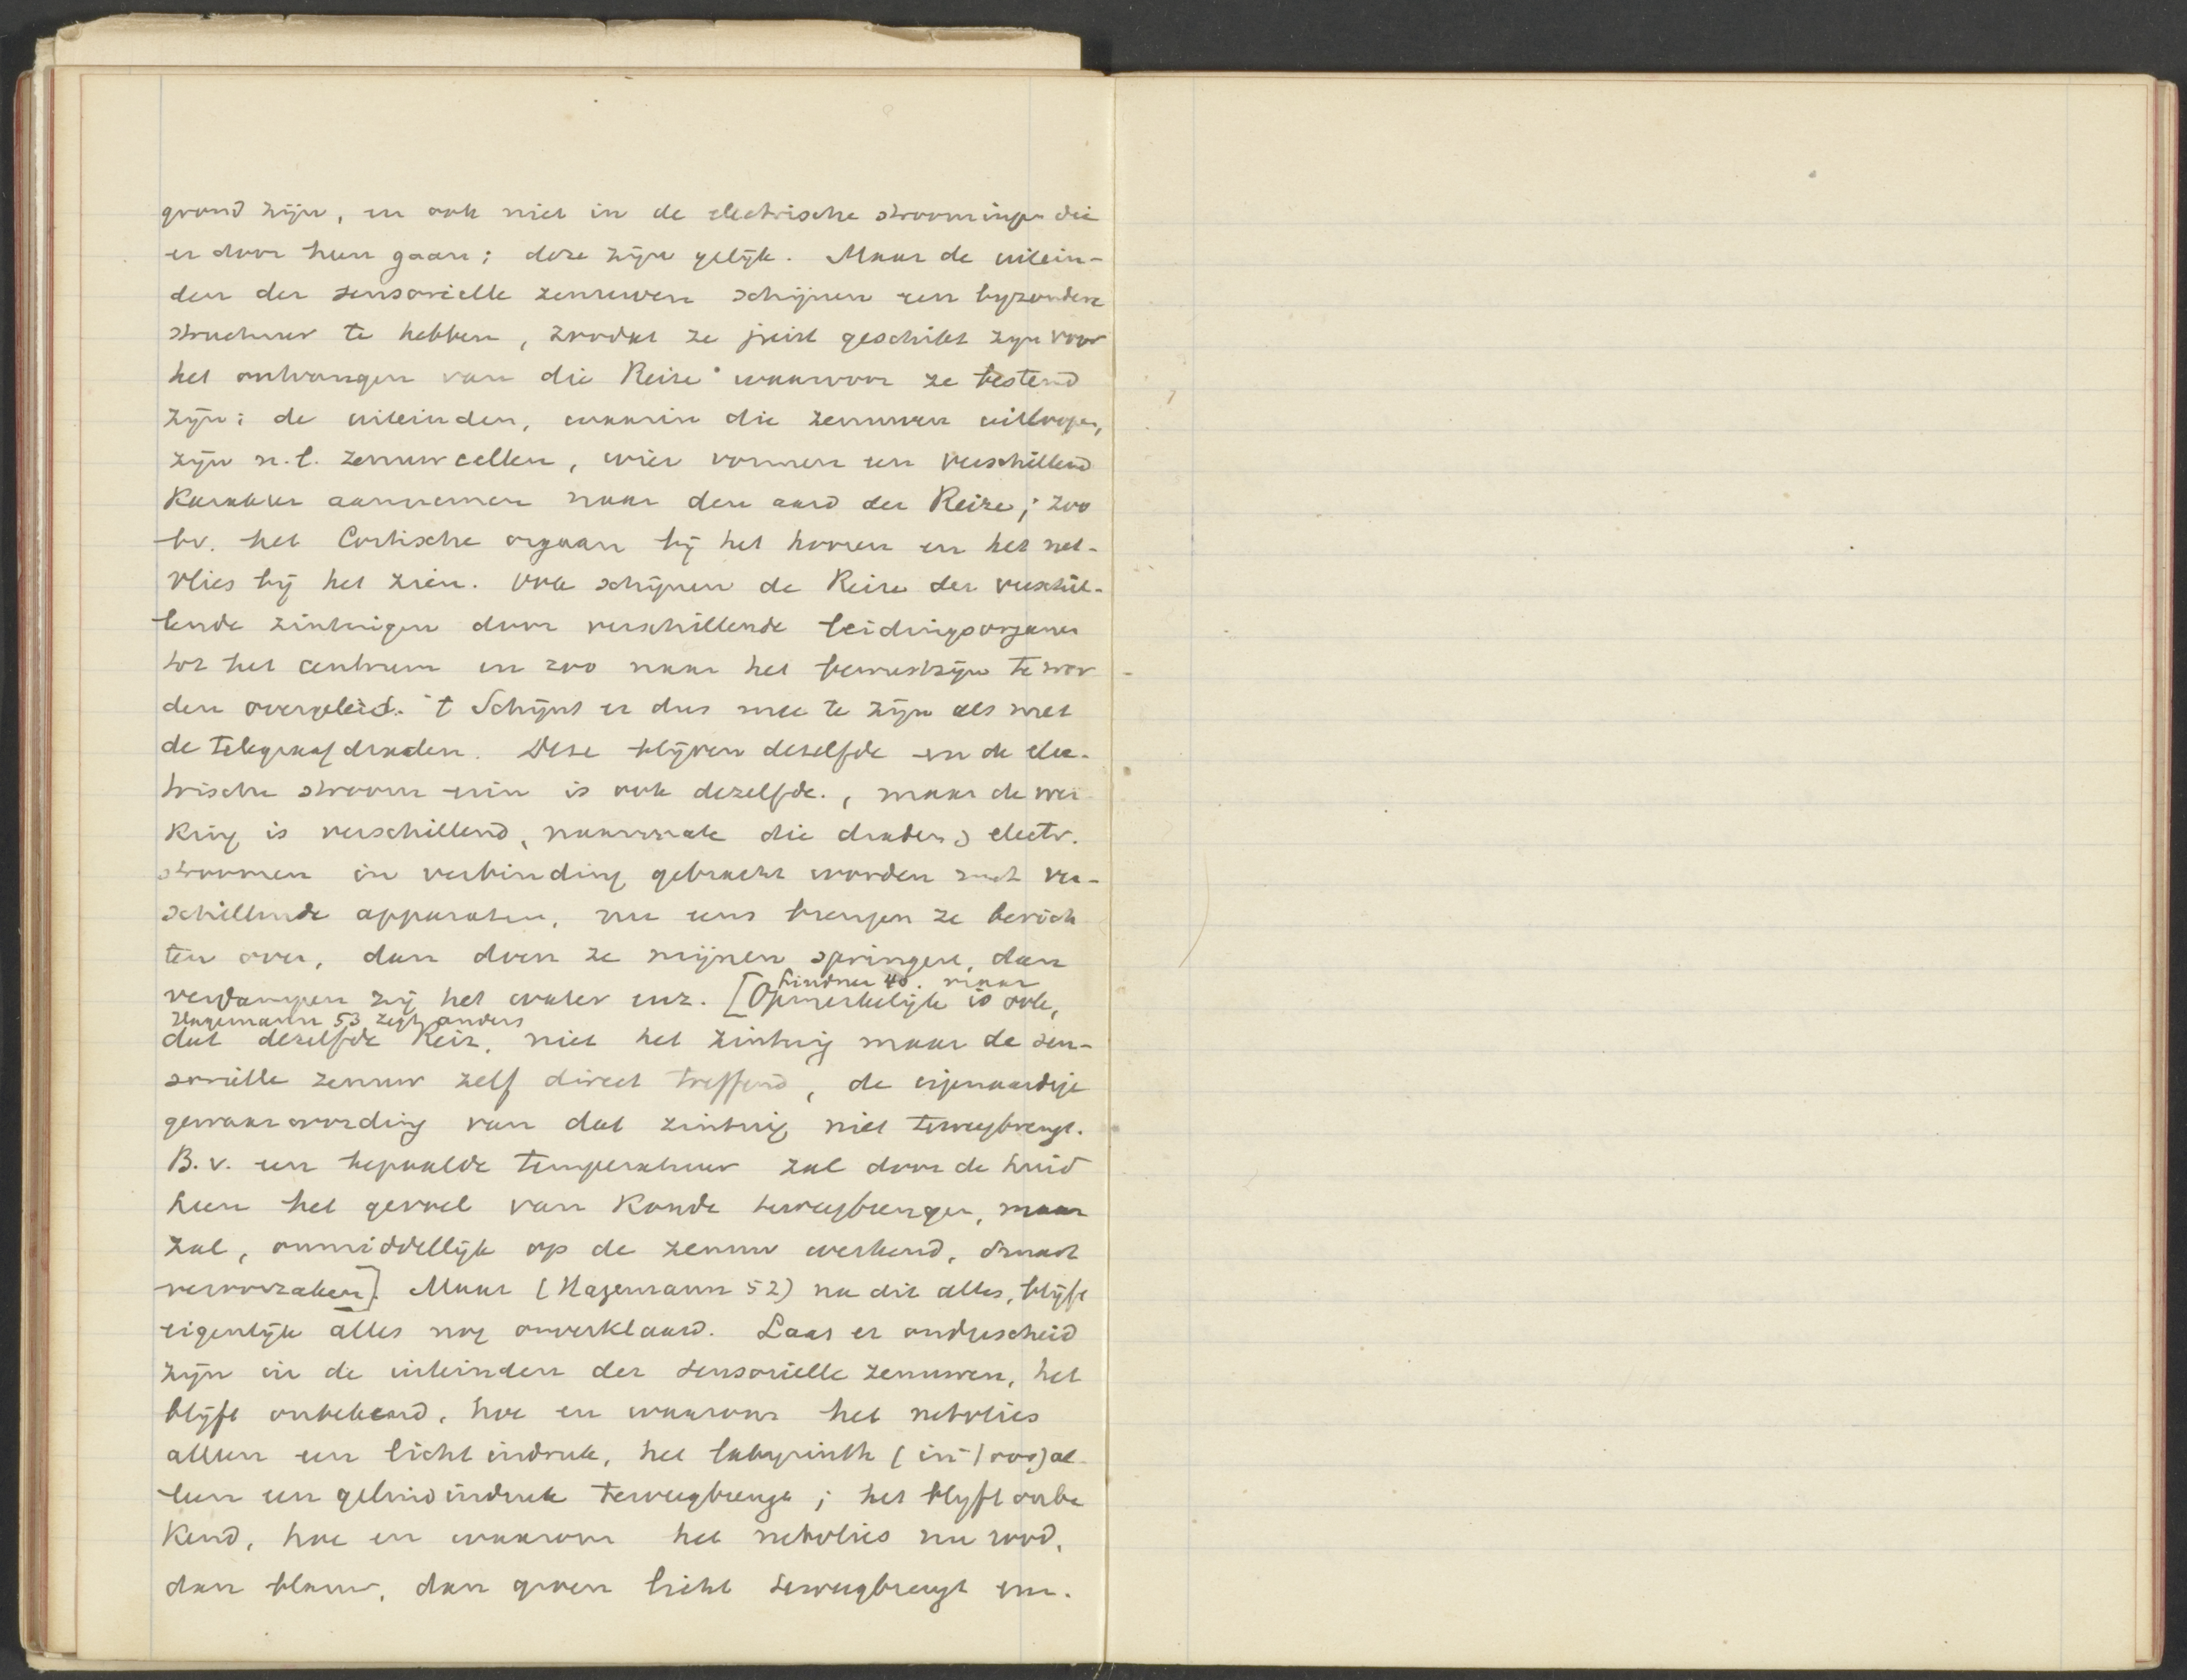 grond zijn, en ook niet in de electrische stroomingen die
er door hen gaan; deze zijn gelijk. Maar de uitein-
den der sensorielle zenuwen schijnen een byzondere
structuur te hebben, zoodat ze juist geschikt zijn voor
het ontvangen van die Reize waarvoor ze bestemd
zijn: de uiteinden, waarin die zenuwen uitloopen,
zijn n.l. zenuwcellen, wier vormen een verschillend
Karakter aannemen naar den aard der Reize; zoo
bv. het Cortische orgaan bij het hooren en het net-
vlies bij het zien. Ook schijnen de Reize der verschil-
lende zintuigen door verschillende leidingsorganen
tot het centrum en zoo naar het bewustzijn te wor
den overgeleid. 't Schijnt er dus mee te zijn als met
de telegraafdraden. Deze blijven dezelfde en de elec-
trische stroom erin is ook dezelfde., maar de wer
king is verschillend, naarmate die draden, electr.
stroomen in verbinding gebracht worden met ver-
schillende apparaten, nu eens brengen ze berich
ten over, dan doen ze mijnen springen, dan
Lindner 40. maar
verdampen zij het water enz. [Opmerkelijk is ook,
Hagemann 53 zegt anders
dat dezelfde Reiz, niet het zintuig maar de sen-
sorielle zenuw zelf direct treffend, de eigenaardige
gewaarwording van dat zintuig niet teweegbrengt.
B.v. een bepaalde temperatuur zal door de huid
heen het gevoel van Koude teweegbrengen, maar
zal, onmiddellijk op de zenuw werkend, smart
veroorzaken]. Maar (Hagemann 52) na dit alles, blijft
eigenlijk alles nog onverklaard. Laat er onderscheid
zijn in de uiteinden der sensorielle zenuwen, het
blijft onbekend, hoe en waarom het netvlies
alleen een licht indruk, het labyrinth (in 't oor) al
leen een geluid indruk teweegbrengt; het blyft onbe
Kend, hoe en waarom het netvlies nu rood,
dan blauw, dan groen licht teweegbrengt enz.